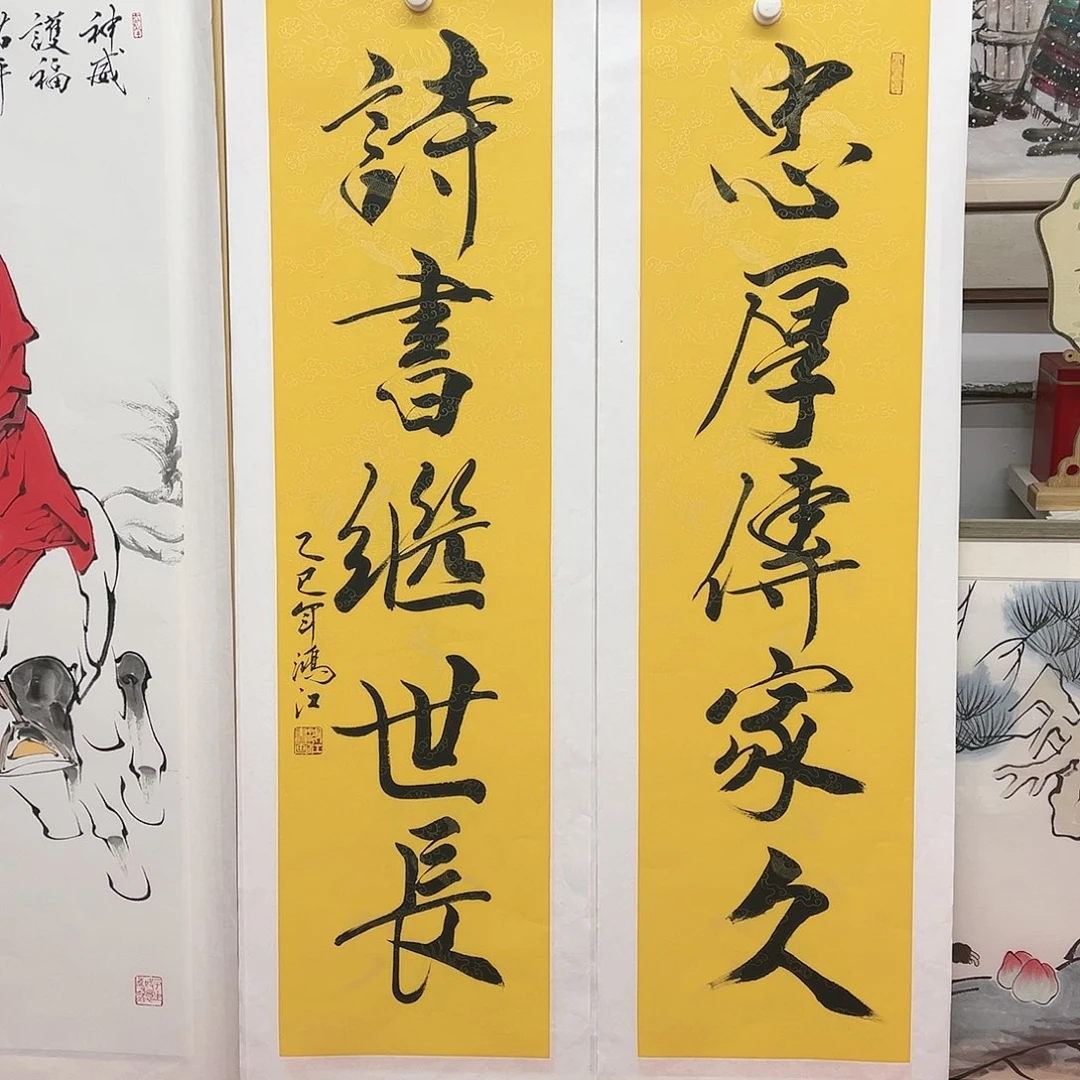 忠厚傳家久
詩書繼世長
乙巳年鴻江
神威
護福